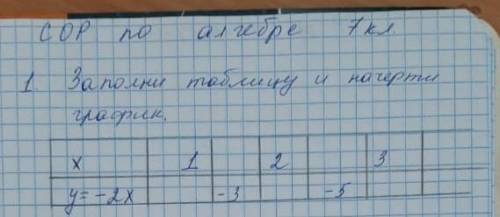 СОР по алгебре 7кл
1 Заполни таблицу и начерти
график.
x 1 2 3
y=-2x -3 -5